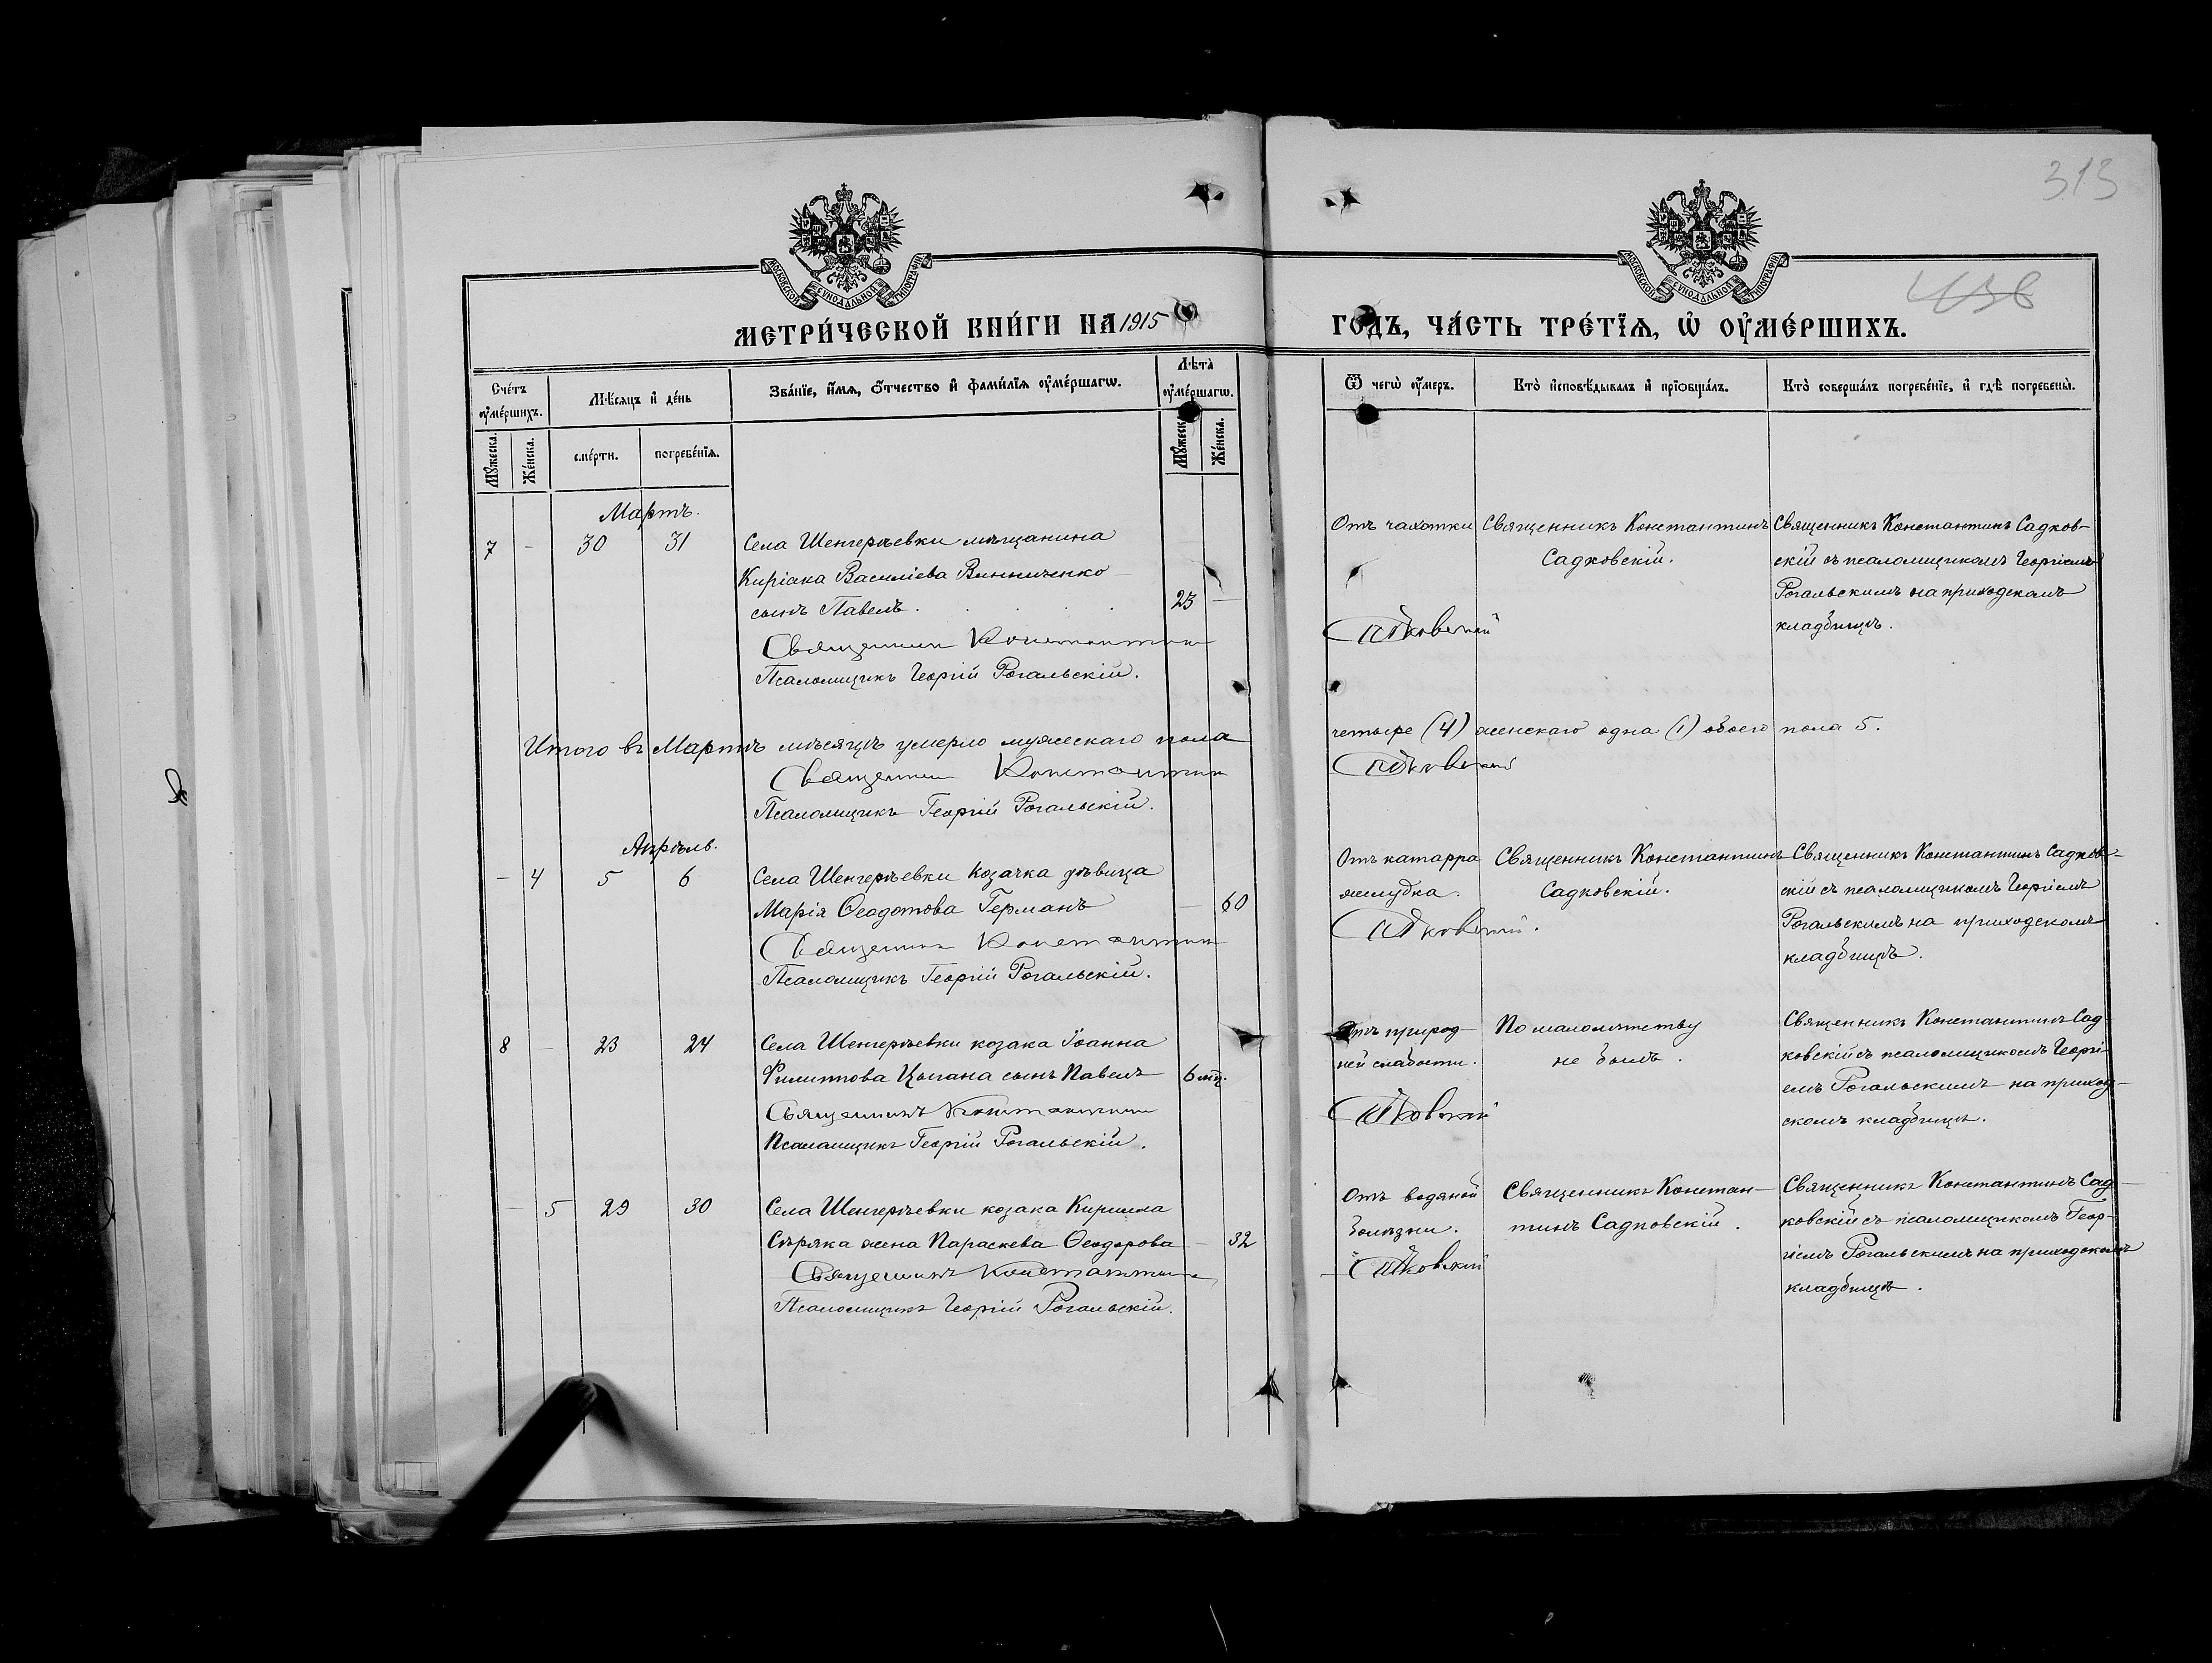 313
436
МОСКОВСКОЙ СѴНОДАЛЬНОЙ ТИПОГРАФІИ
МОСКОВСКОЙ СѴНОДАЛЬНОЙ ТИПОГРАФІИ
МЕТРИ́ЧЕСКОЙ КНИ́ГИ НА 1915 ГО́ДЪ, ЧА́СТЬ ТРЕ́ТЇѦ, Ѡ҆ ОУ҆МЕ́РШИХЪ.
Сче́тъ оу҆ме́ршихъ.
Мꙋ́жеска.
Же́нска.
Мѣ́сѧцъ и҆ де́нь
сме́рти.
погребе́нїѧ.
Зва́нїе, и҆́мѧ, ѻ҆́тчество и҆ фами́лїѧ оу҆ме́ршагѡ.
Лѣ́та оу҆ме́ршагѡ.
Мꙋ́жеска.
Же́нска.
Ѿ чегѡ̀ оу҆́меръ.
Кто̀ и҆сповѣ́дывалъ и҆ прїѡбща́лъ.
Кто̀ соверша́лъ погребе́нїе, и҆ гдѣ̀ погребены̀.
Мартъ.
7 - 30 31 Села Шенгерѣевки мѣщанина
Киріака Василіева Винниченко
сынъ Павелъ. 23 —
Священникъ Константинъ
Псаломщикъ Георгій Рогальскій.
Отъ чахотки
Садковскій
Священникъ Константинъ
Садковскій.
Священникъ Константинъ Садков-
скій съ псаломщикомъ Георгіемъ
Рогальскимъ на приходскомъ
кладбищѣ.
Итого въ Мартѣ мѣсяцѣ умерло мужескаго пола четыре (4) женскаго одна (1) обоего пола 5.
Священникъ Константинъ Садковскій
Псаломщикъ Георгій Рогальскій.
Апрѣль.
— 4 5 6 Села Шенгерѣевки козачка дѣвица
Марія Ѳеодотова Германъ — 60
Священникъ Константинъ
Псаломщикъ Георгій Рогальскій.
Отъ катарра
желудка.
Садковскій.
Священникъ Константинъ
Садковскій.
Священникъ Константинъ Садков-
скій съ псаломщикомъ Георгіемъ
Рогальскимъ на приходскомъ
кладбищѣ.
8 — 23 24 Села Шенгерѣевки козака Іоанна
Филиппова Цыгана сынъ Павелъ 6 мц.
Священникъ Константинъ
Псаломщикъ Георгій Рогальскій.
Отъ природ-
ной слабости.
Садковскій
По малолѣтству
не былъ.
Священникъ Константинъ Сад-
ковскій съ псаломщикомъ Георгі-
емъ Рогальскимъ на приход-
скомъ кладбищѣ.
— 5 29 30 Села Шенгерѣевки козака Кирилла
Сѣряка жена Параскева Ѳеодорова — 32
Священникъ Константинъ
Псаломщикъ Георгій Рогальскій.
Отъ водяной
болѣзни.
Садковскій
Священникъ Констан-
тинъ Садковскій.
Священникъ Константинъ Сад-
ковскій съ псаломщикомъ Геор-
гіемъ Рогальскимъ на приходскомъ
кладбищѣ.